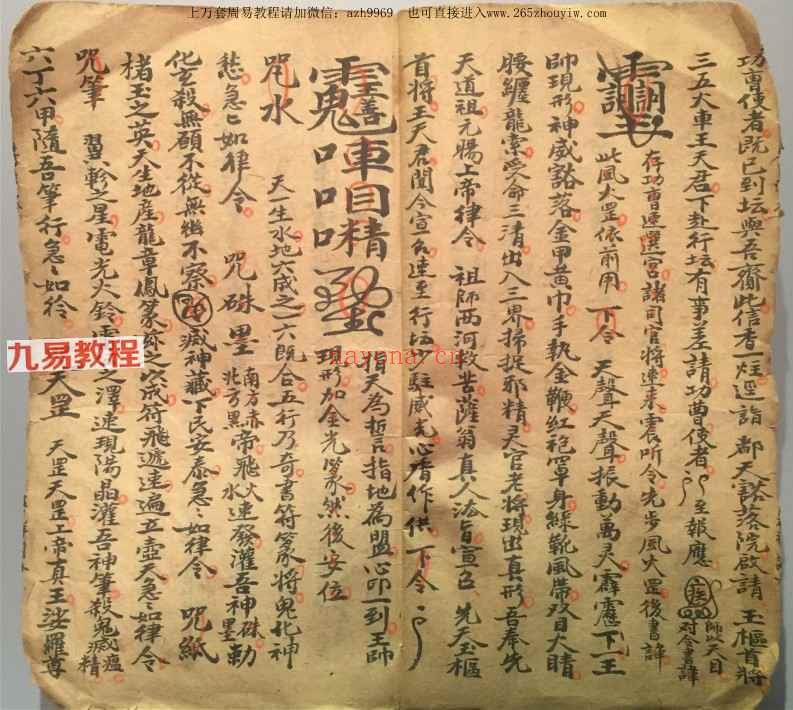 上万套周易教程请加微信：azh9969 也可直接进入www.265zhouyiw.com
功曹使者既已到坛與吾齎此信香一炷逕詣 都天豁落院啟請 玉樞首將
三五大車王天君下赴行坛有事差請功曹使者 至報應
師此天目
对令書諱
存功曹速選宮諸司官將速来震听令先步風火罡後書諱
此風火罡依前用 下令 天聲天聲振動萬灵霹靂下一王
帥現形神威豁落金甲黄巾手執金鞭紅袍罩身綠靴風帶双目大睛
腰纏龍索受命三清出入三界掃捉邪精灵官老將現出真形吾奉先
天道祖元賜上帝律令 祖師西河救苦薩翁真人法旨宣召 先天玉樞
首將王天君聞令宣召速至行坛少駐威光心香作供 下令
指天為誓言指地為盟心叩一到王帥
車目精
現形加金光篆然後安位
咒水 天一生水地六成之一六既合五行乃奇書符篆將鬼化神
愁急急如律令 咒硃墨 南方赤帝飛火
北方黑 水速發灌吾神硃墨勅
化玄殺無碩不從無 不察 滅神藏下民安泰急急如律令 咒紙
楮玉之英天生地産龍章鳳篆 之以成符飛遞速遍立壺天急急如律令
咒筆 翼軫之星電光火鈴 之澤速現陽晶灌吾神筆殺鬼滅瘟精
六丁六甲隨吾筆行急急如 天罡 天罡天罡上帝真王娑羅尊
九易教程